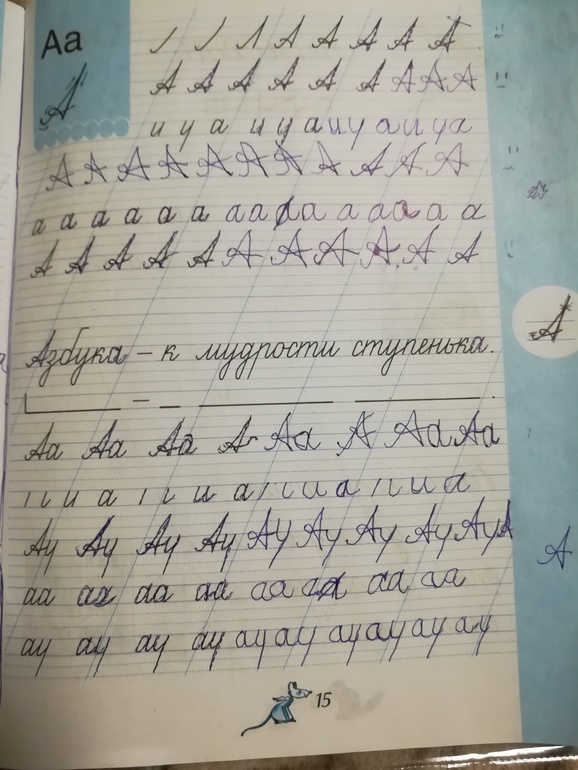 Аа
А А А А А
А
А А А А А А А А А
и у а и у а и у а и у а
А А А А А А А А А А А
а а а а а а а а а а а а а а
А А А А А А А А А А А
А
Азбука – к мудрости ступенька.
Аа Аа Аа А Аа А Аа Аа
и а и а и а и а
Ау Ау Ау Ау Ау Ау Ау Ау Ау А
А
аа аа аа аа аа аа аа аа
ау ау ау ау ау ау ау ау ау ау
15